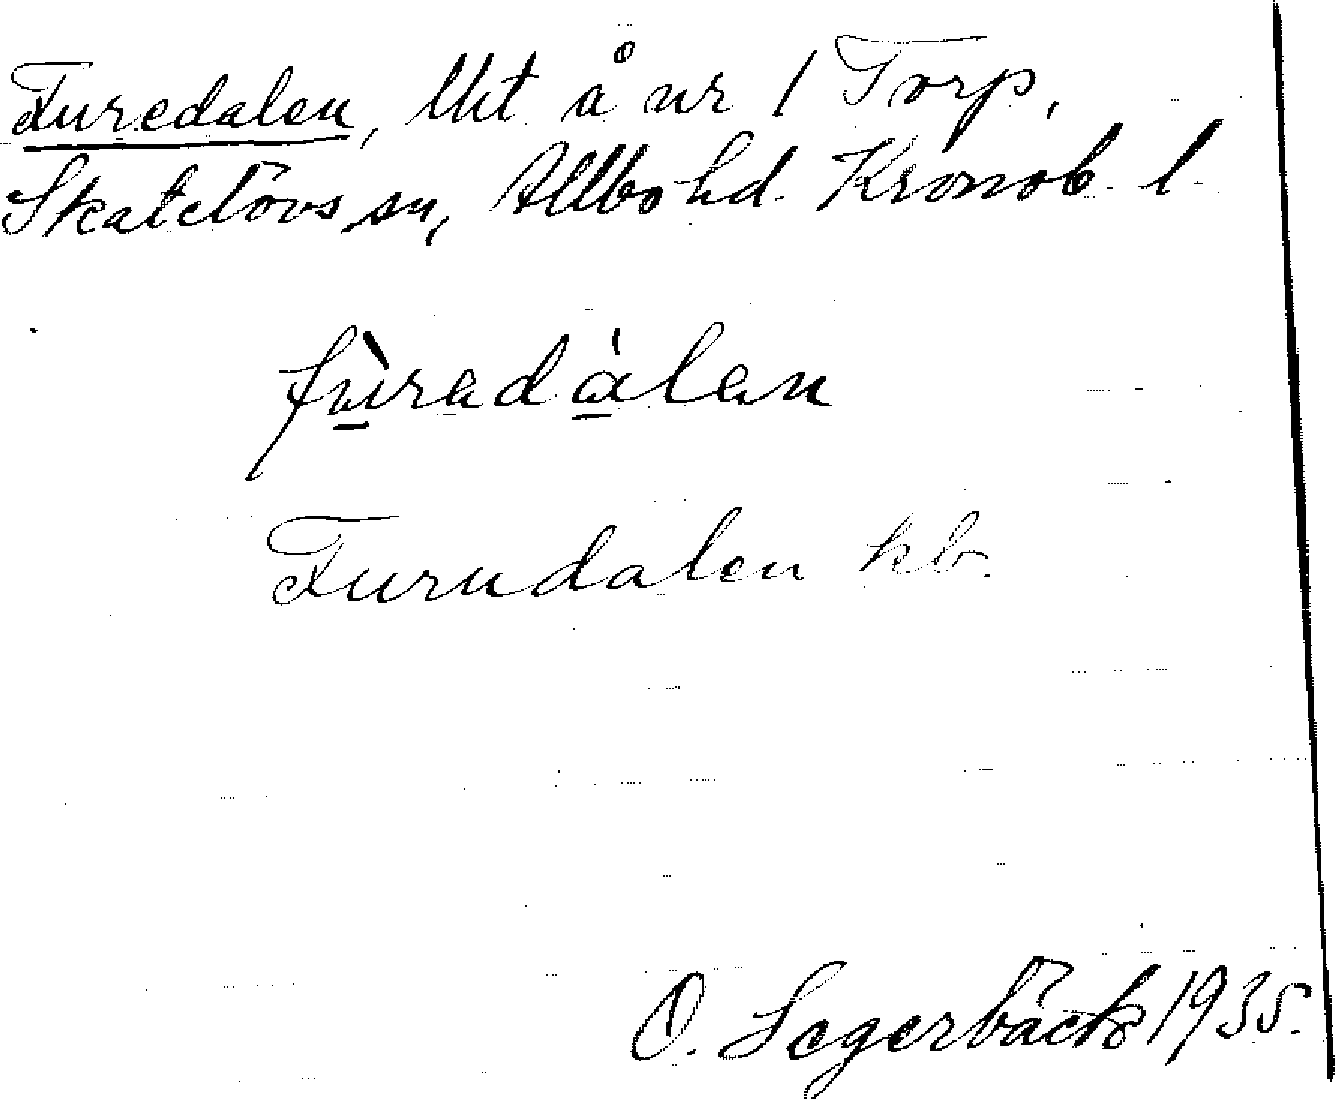 Furedalen, Utt å nr 1 Torp,
Skatelövs sn, Allbo hd. Kronob. l.
fùredálen
Furudalen kb.
O. Segerbäck 1935.